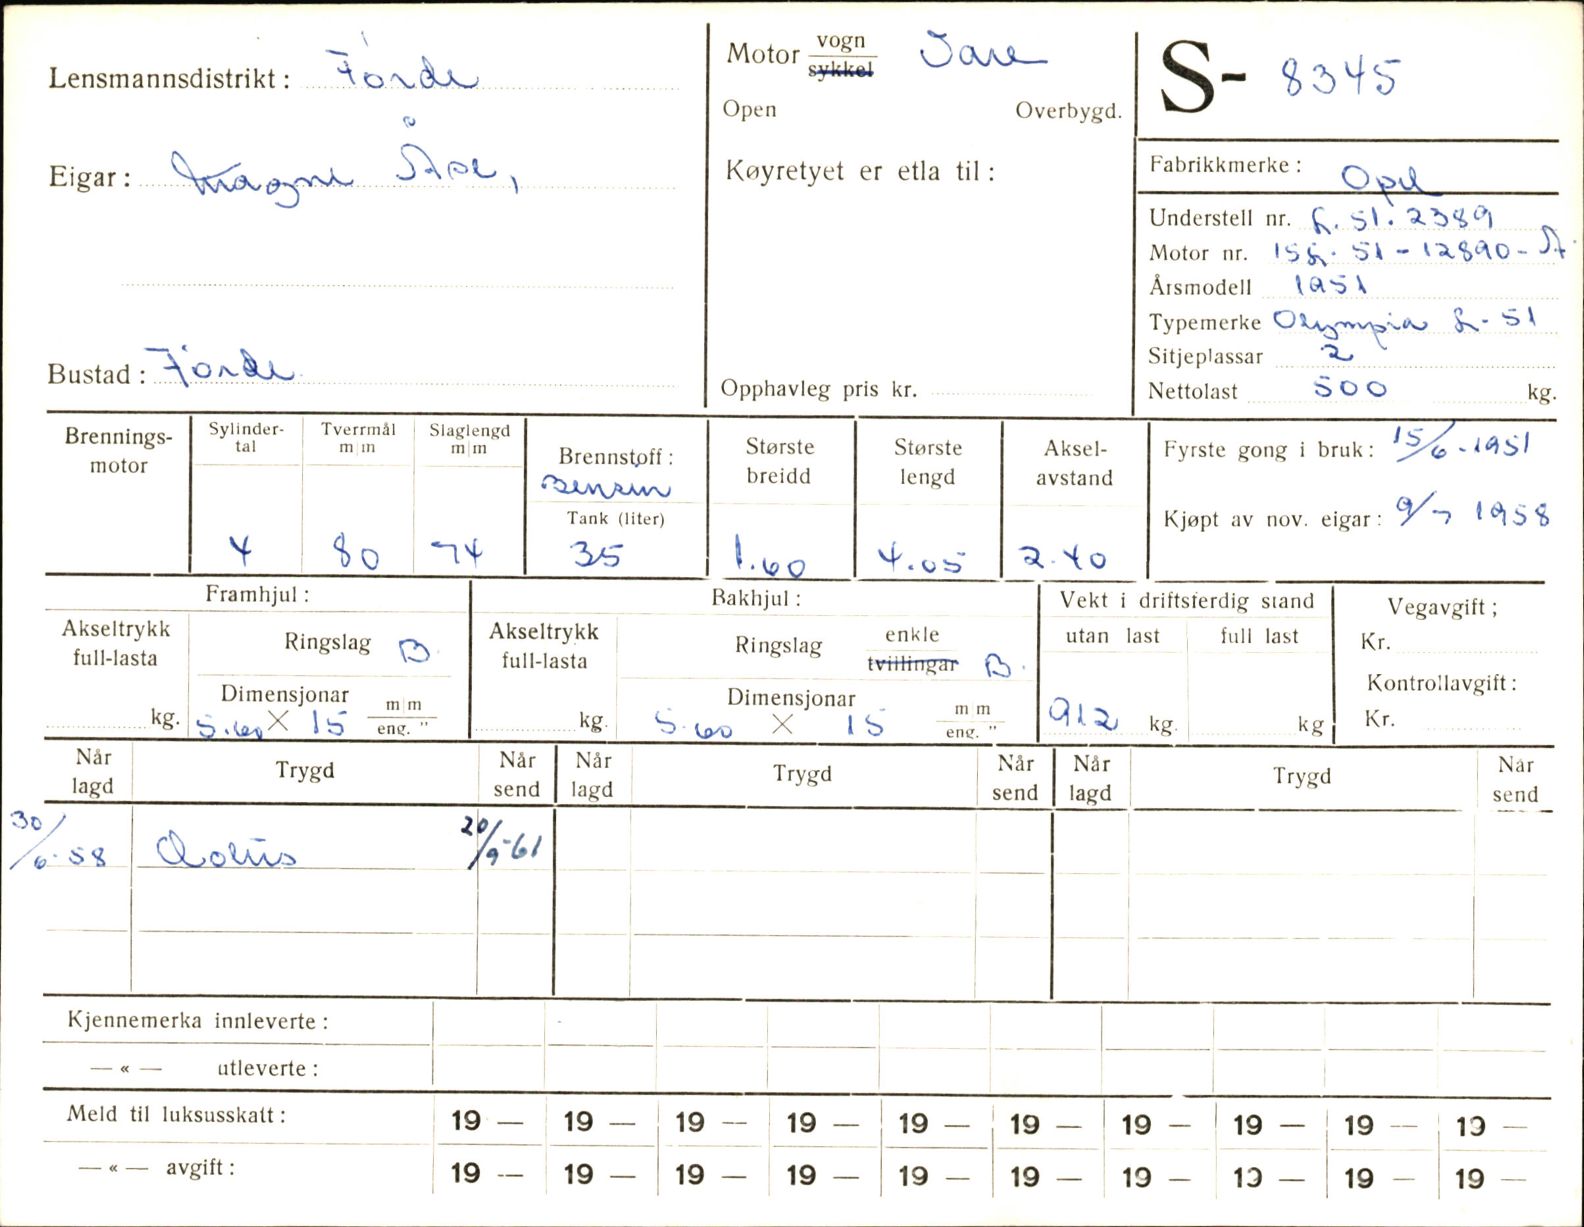 Lensmannsdistrikt: Førde
Eigar: Magne Åse,
Bustad: Førde
Motor vogn
sykkel
Vare
Open Overbygd.
Køyretyet er etla til:
Opphavleg pris kr.
S- 8345
Fabrikkmerke: Opel
Understell nr. L. 51. 2389
Motor nr. 15L. 51 - 12890 - A
Årsmodell 1951
Typemerke Olympia L-51
Sitjeplassar 2
Nettolast 500 kg.
Brennings-
motor
Sylinder-
tal
4
Tverrmål
m|m
80
Slaglengd
m|m
74
Brennstoff:
Bensin
Tank (liter)
35
Største
breidd
1.60
Største
lengd
4.05
Aksel-
avstand
2.40
Fyrste gong i bruk: 15/6-1951
Kjøpt av nov. eigar: 9/7 1958
Framhjul:
Akseltrykk
full-lasta
kg.
Ringslag B.
Dimensjonar
5.60 X 15 m|m
eng. "
Bakhjul:
Akseltrykk
full-lasta
kg.
Ringslag enkle
tvillingar B.
Dimensjonar
5.60 X 15 m|m
eng. "
Vekt i driftsferdig stand
utan last full last
912 kg. kg
Vegavgift;
Kr.
Kontrollavgift:
Kr.
Når
lagd
Trygd
Når
send
Når
lagd
Trygd
Når
send
Når
lagd
Trygd
Når
send
30/6-58 20/9-61
Kjennemerka innleverte:
— « — utleverte:
Meld til luksusskatt: 19 — 19 — 19 — 19 — 19 — 19 — 19 — 19 — 19 — 19 —
— « — avgift: 19 — 19 — 19 — 19 — 19 — 19 — 19 — 19 — 19 — 19 —